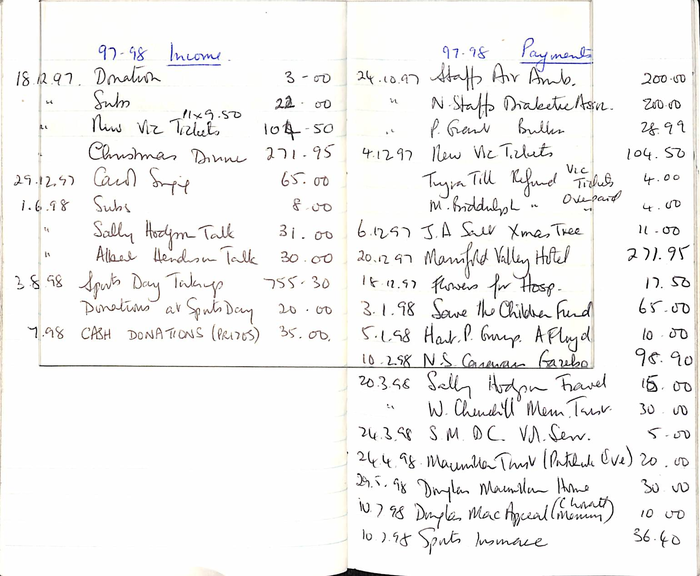 97-98 Income
18.12.97. Donation 3-00
" Subs 22.00
" New Vic Tickets 11x9.50 104-50
" Christmas Dinner 271.95
29.12.97 Carol Singing 65.00
1.6.98 Subs 8.00
" Sally Hodgson Talk 31.00
" Albert Henderson Talk 30.00
3.8.98 Sports Day Takings 755-30
Donations at Sports Day 20.00
7.98 CASH DONATIONS (PRIZES) 35.00.
97-98 Payments
24.10.97 Staffs Air Amb. 200.00
" N. Staffs Diabetic Assn. 200.00
" P. Grant Bulbs 28.99
4.12.97 New Vic Tickets 104.50
Till Refund Vic Tickets 4.00
M. Biddulph " Overpaid " 4.00
6.12.97 J.A Salt Xmas Tree 11.00
20.12.97 Manifold Valley Hotel 271.95
18.12.97 Flowers for Hosp. 17.50
3.1.98 Save the Children Fund 65.00
5.1.98 Hart. P. Group. A Floyd 10.00
10.2.98 N.S. Caravan Gazebo 98.90
20.3.98 Sally Hodgson Travel 15.00
" W. Churchill Mem. Trust. 30.00
24.3.98 S.M.D.C. Serv. 5.00
24.4.98. Macmillan Trust 20.00
29.5.98 Douglas Macmillan Home 30.00
10.7.98 Douglas Mac Appeal 10.00
10.7.98 Sports Insurance 36.40